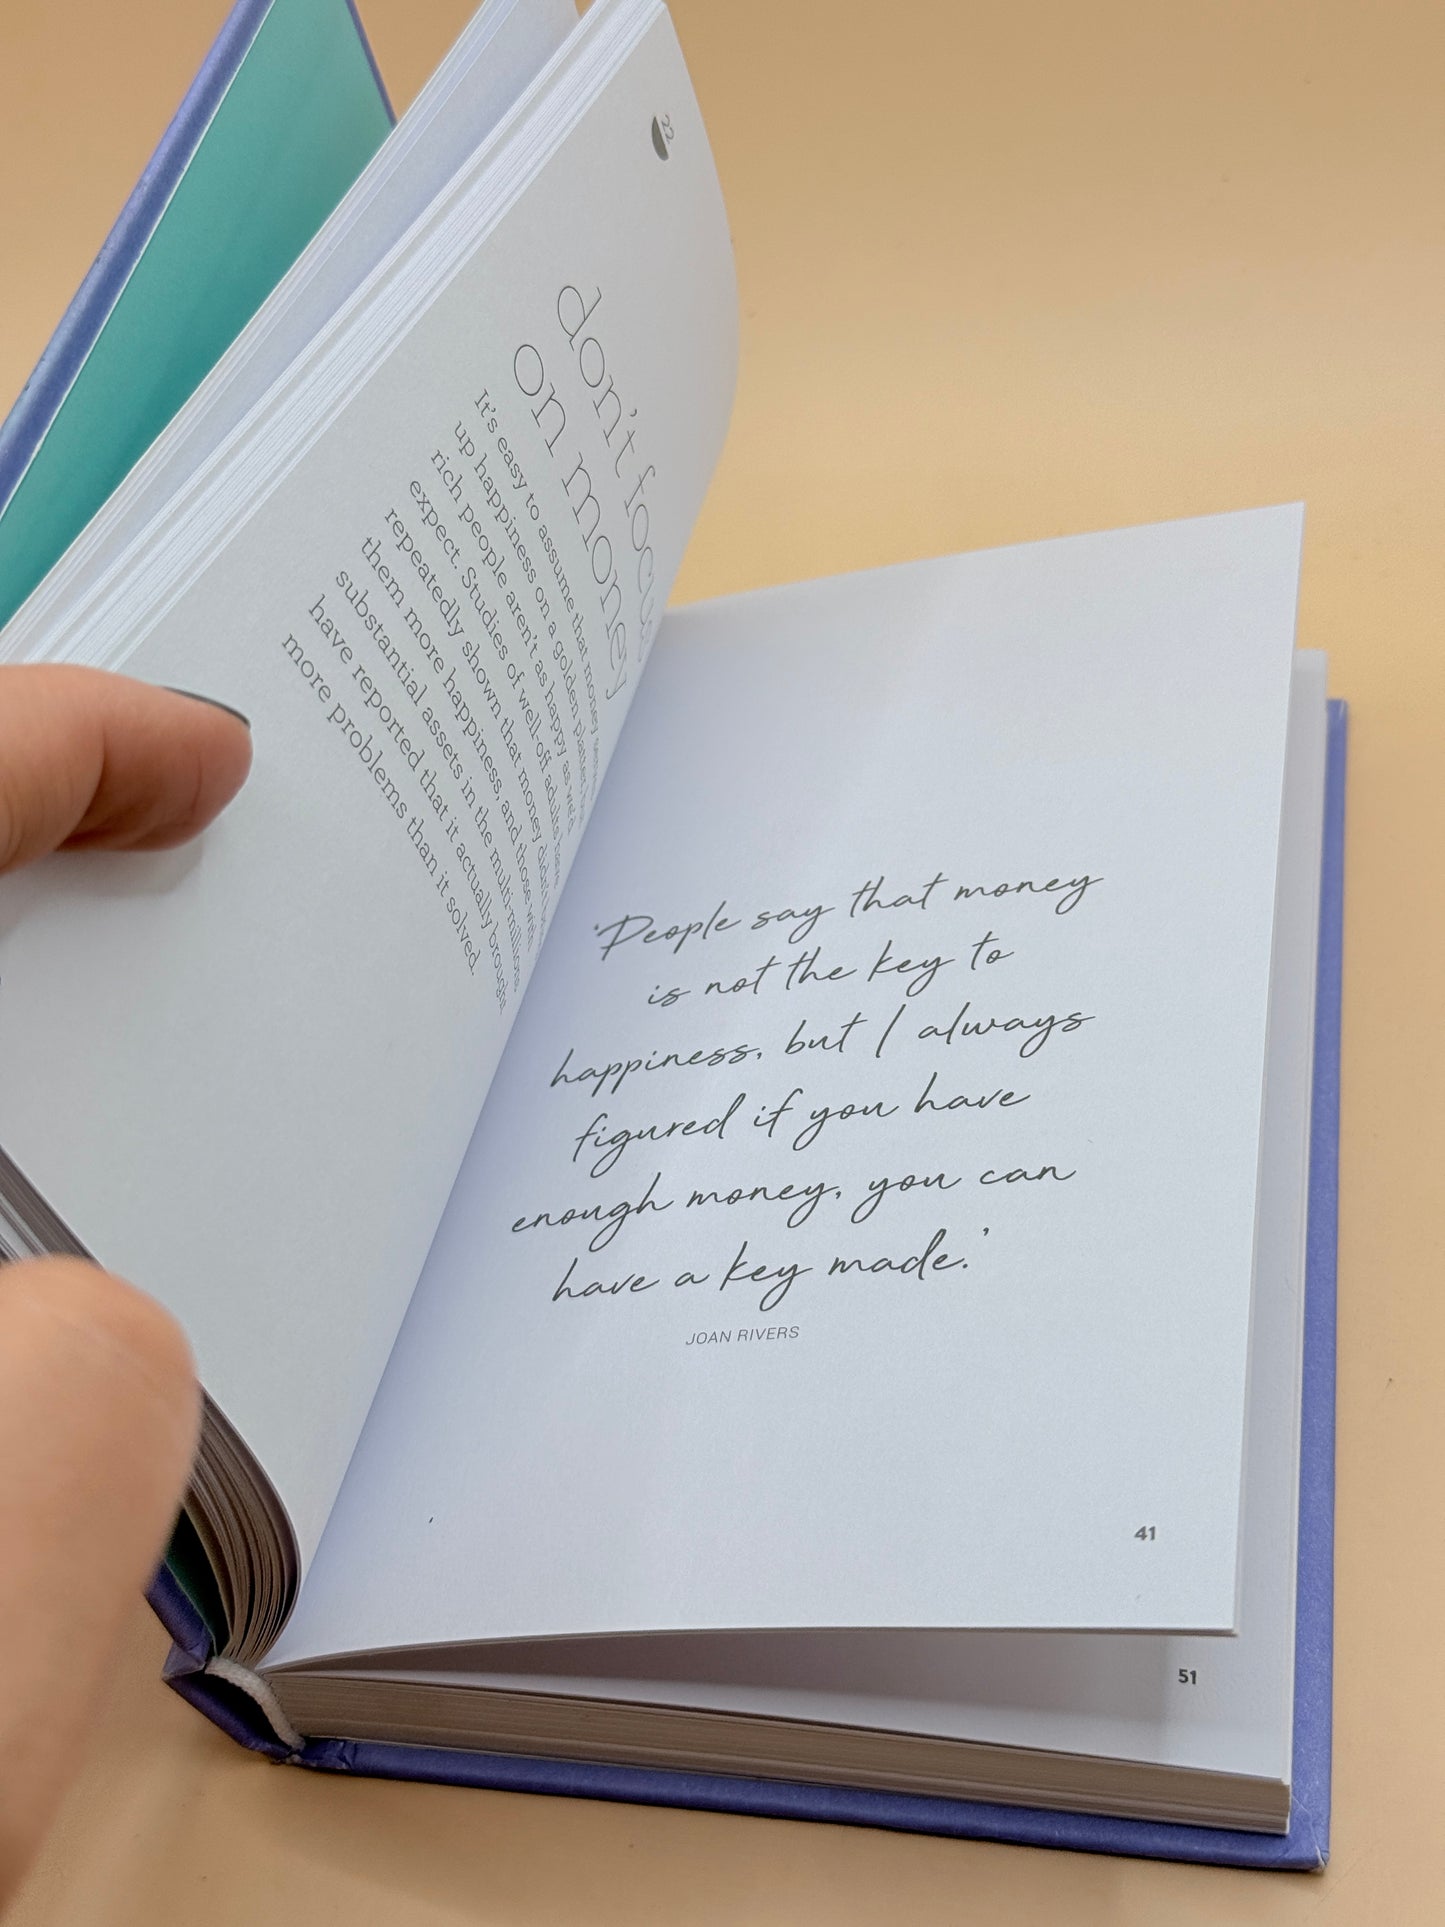 22
don't focus
on money
It's easy to assume that money
up happiness on a golden platter,
rich people aren't as happy as we'd
expect. Studies of well-off adults have
repeatedly shown that money didn't
them more happiness, and those with
substantial assets in the multi-millions
have reported that it actually brought
more problems than it solved.
'People say that money
is not the key to
happiness, but I always
figured if you have
enough money, you can
have a key made.'
JOAN RIVERS
41
51